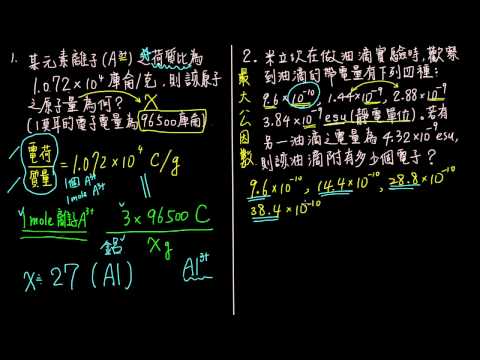 1. 某元素離子(A³⁺)之荷質比為
1.072×10⁴庫侖/克,則該原子
之原子量為何? X
(1莫耳的電子電量為96500庫侖)
電荷
質量
= 1.072×10⁴ C/g
1個 A³⁺
1mole A³⁺
1mole離子A³⁺
3×96500 C
X g
鋁
X≒27 (Al)
Al³⁺
2. 米立坎在做油滴實驗時,觀察
到油滴的帶電量有下列四種:
9.6×10⁻¹⁰, 1.44×10⁻⁹, 2.88×10⁻⁹
3.84×10⁻⁹esu(靜電單位),若有
另一油滴之電量為4.32×10⁻⁹esu,
則該油滴附有多少個電子?
最大公因數
9.6×10⁻¹⁰, 14.4×10⁻¹⁰, 28.8×10⁻¹⁰
38.4×10⁻¹⁰